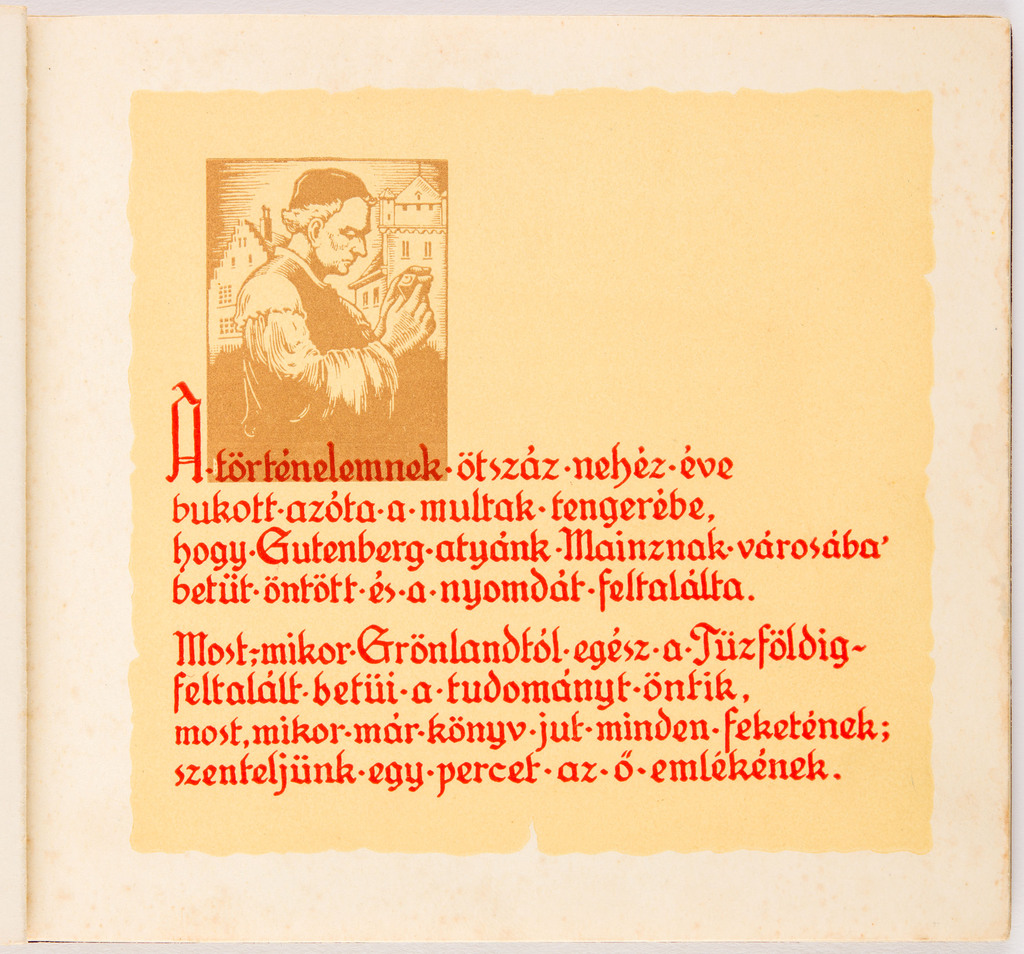 A·történelemnek·ötszáz·nehéz·éve
bukott·azóta·a·multak·tengerébe,
hogy·Gutenberg·atyánk·Mainznak·városába'
betüt·öntött·és·a·nyomdát·feltalálta.
Most,·mikor·Grönlandtól·egész·a·Tüzföldig-
feltalált·betüi·a·tudományt·öntik,
most,mikor·már·könyv·jut·minden·feketének;
szenteljünk·egy·percet·az·ő·emlékének.